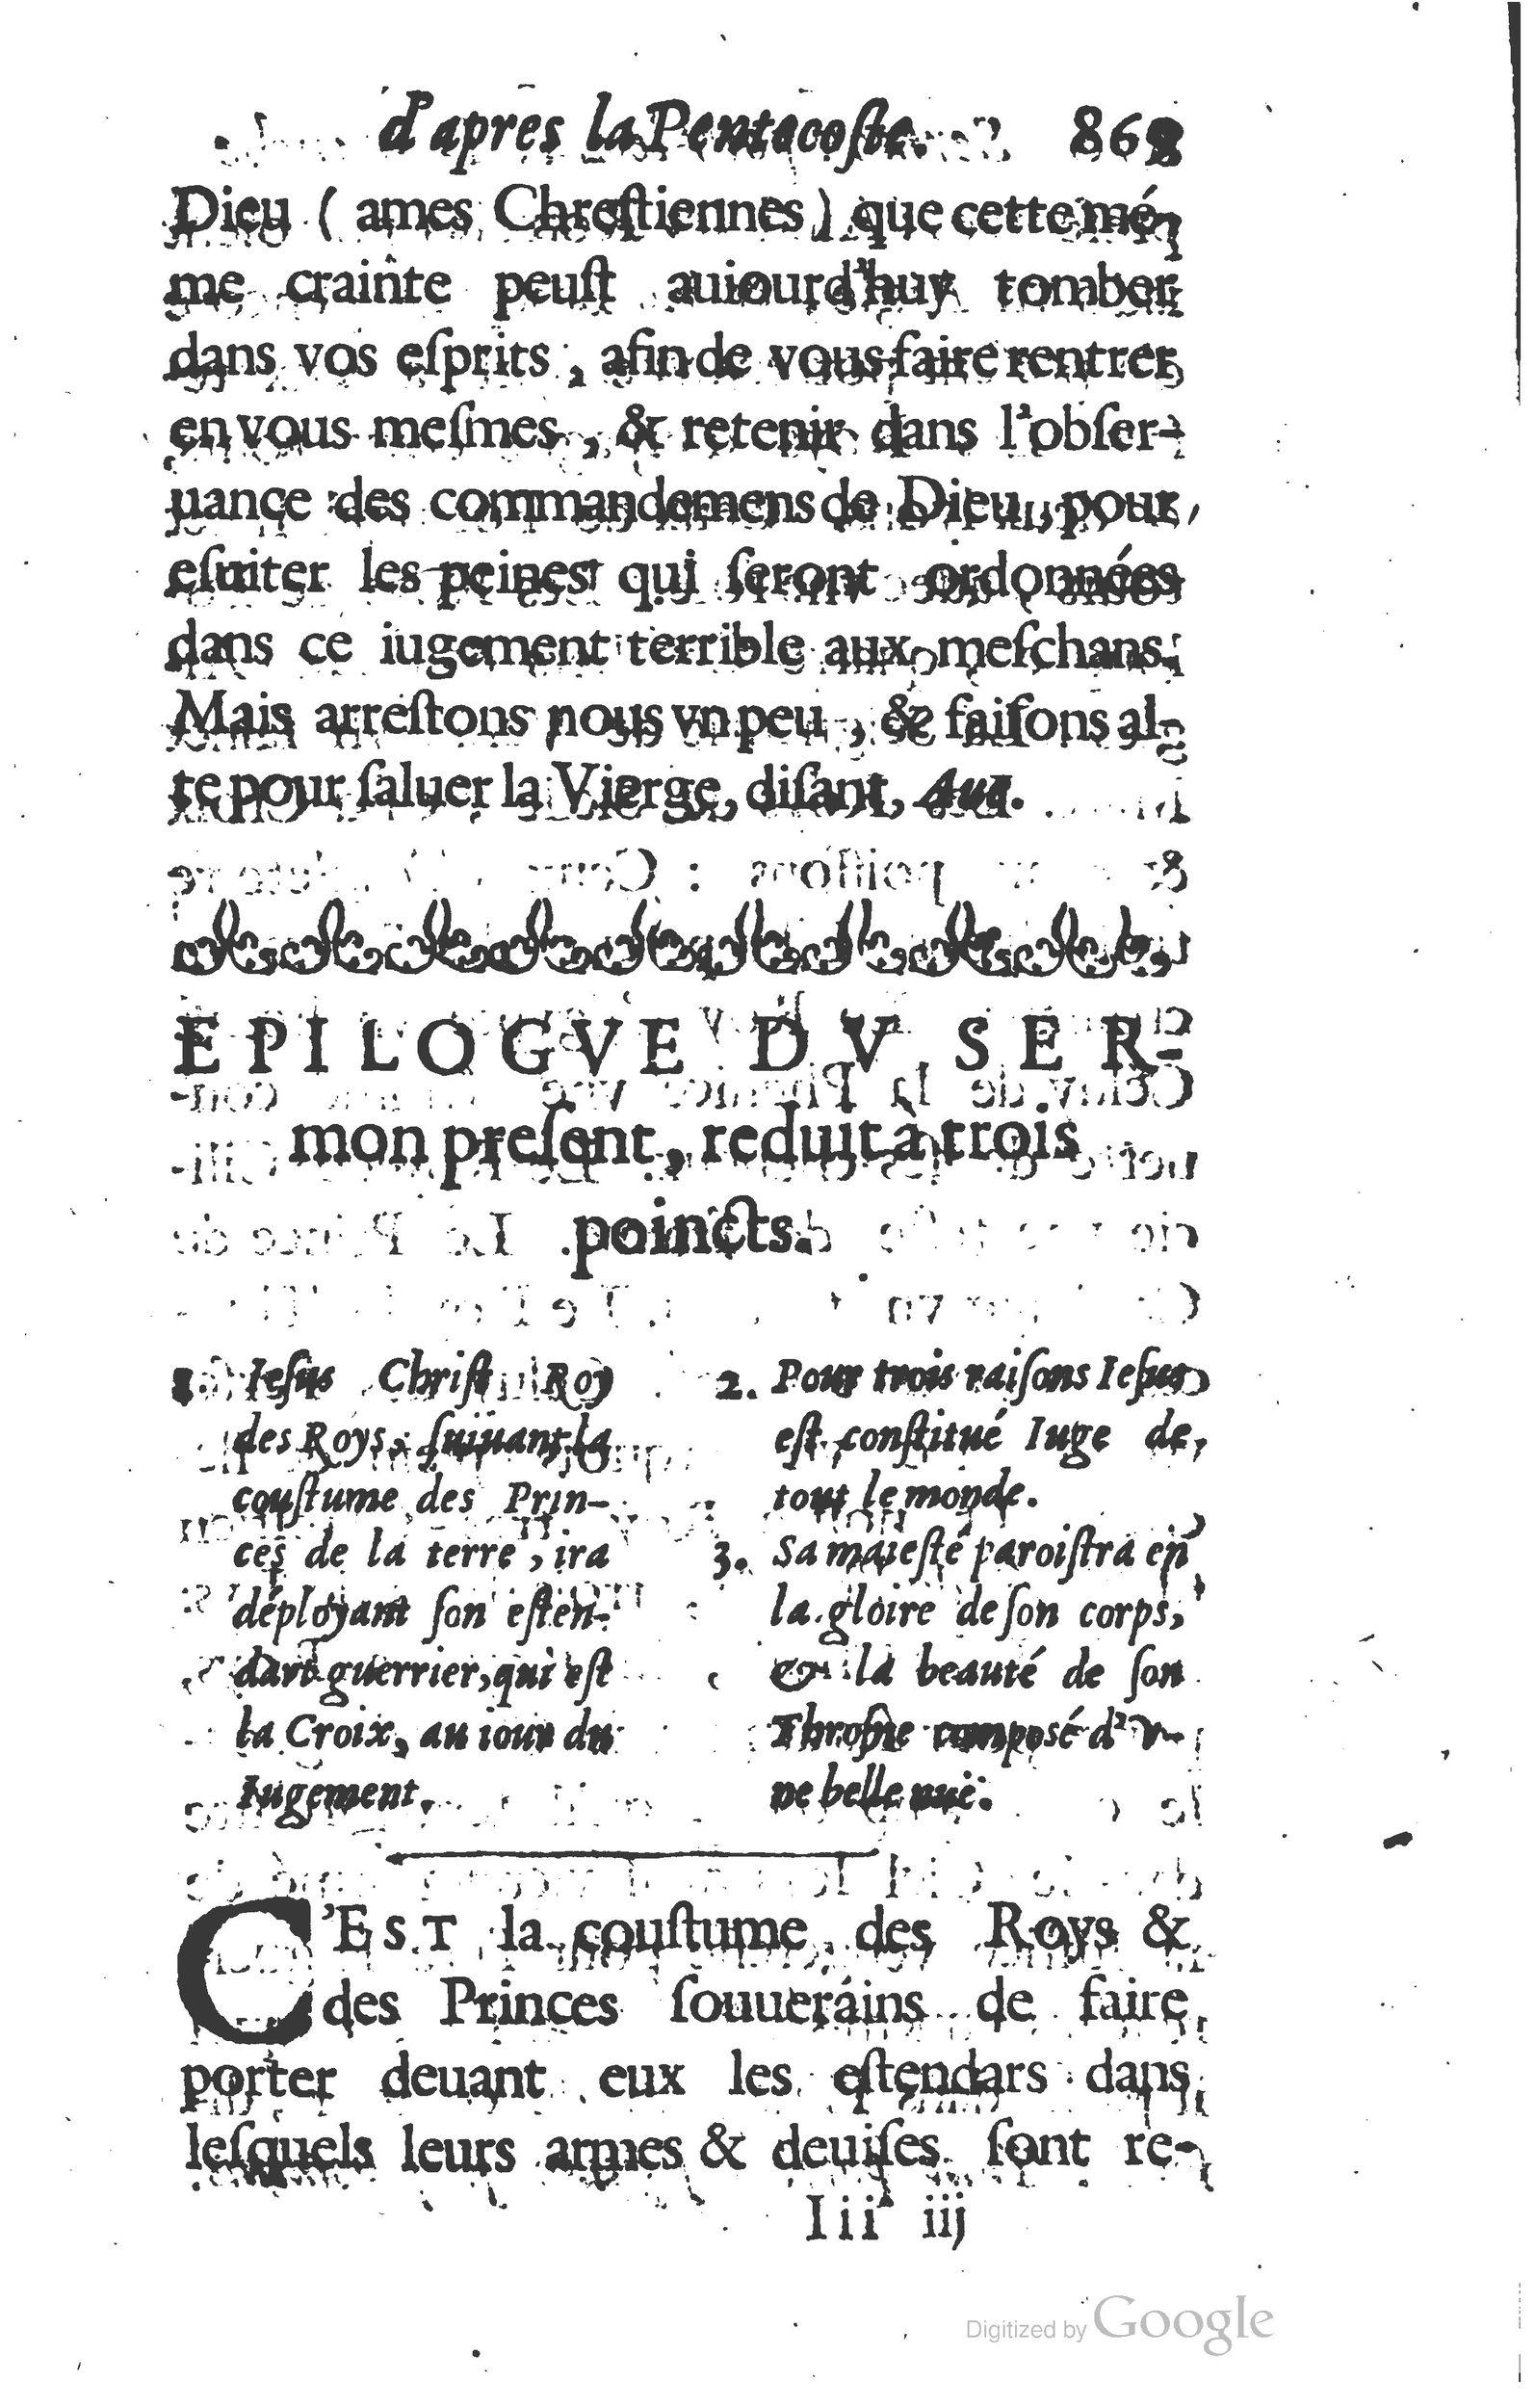 d'apres la Pentecoste. 869
Dieu ( ames Chreſtiennes ) que cette mé-
me crainte peuſt auiourd'huy tomber
dans vos eſprits, afin de vous faire rentrer
en vous meſmes, & retenir dans l'obſer-
uance des commandemens de Dieu, pour
eſuiter les peines qui ſeront ordonnées
dans ce iugement terrible aux meſchans.
Mais arreſtons nous vn peu, & faiſons al-
te pour ſaluer la Vierge, diſant, Aue.
EPILOGVE DV SER-
mon preſent, reduit à trois
poincts.
1. Ieſus Chriſt Roy
des Roys, ſuiuant la
couſtume des Prin-
ces de la terre, ira
déployant ſon eſten-
dart guerrier, qui eſt
la Croix, au iour du
Iugement.
2. Pour trois raiſons Ieſus
eſt conſtitué Iuge de
tout le monde.
3. Sa maieſté paroiſtra en
la gloire de ſon corps,
& la beauté de ſon
Throſne composé d'v-
ne belle nuë.
C'EST la couſtume des Roys &
des Princes ſouuerains de faire
porter deuant eux les eſtendars dans
leſquels leurs armes & deuiſes ſont re-
Iii iij
Digitized by Google